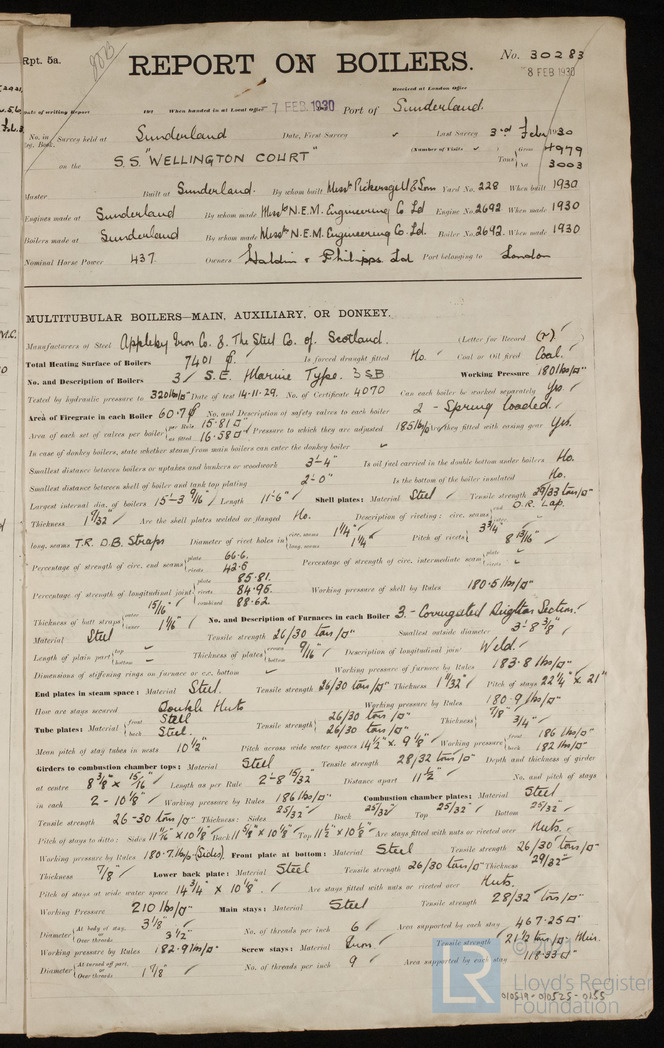 Rpt. 5a.
REPORT ON BOILERS.
No. 30283
8 FEB 1930
Received at London Office
Date of writing Report 192 When handed in at Local Office 7 FEB. 1930 Port of Sunderland.
No. in Reg. Book. Survey held at Sunderland Date, First Survey Last Survey 3rd Feby 1930
on the S.S. "WELLINGTON COURT" (Number of Visits ) Tons Gross 4979 Net 3003
Master Built at Sunderland. By whom built Messrs Pickersgill & Sons Yard No. 228 When built 1930
Engines made at Sunderland By whom made Messrs N.E.M. Engineering Co Ld Engine No. 2692 When made 1930
Boilers made at Sunderland By whom made Messrs N.E.M. Engineering Co. Ld. Boiler No. 2692 When made 1930
Nominal Horse Power 437. Owners Haldin & Philipps Ld Port belonging to London
MULTITUBULAR BOILERS—MAIN, AUXILIARY, OR DONKEY.
Manufacturers of Steel Appleby Iron Co. & The Steel Co. of Scotland. (Letter for Record (r))
Total Heating Surface of Boilers 7401 Is forced draught fitted No. Coal or Oil fired Coal.
No. and Description of Boilers 3 S.E. Marine Type. 3 SB Working Pressure 180 lbs/□"
Tested by hydraulic pressure to 320 lbs/□" Date of test 14.11.29. No. of Certificate 4070 Can each boiler be worked separately Yes.
Area of Firegrate in each Boiler 60.7 No. and Description of safety valves to each boiler 2 - Spring loaded.
Area of each set of valves per boiler per Rule 15.81 □" as fitted 16.58 □" Pressure to which they are adjusted 185 lbs/□" Are they fitted with easing gear Yes.
In case of donkey boilers, state whether steam from main boilers can enter the donkey boiler
Smallest distance between boilers or uptakes and bunkers or woodwork 3'-4" Is oil fuel carried in the double bottom under boilers No.
Smallest distance between shell of boiler and tank top plating 2'-0" Is the bottom of the boiler insulated No.
Largest internal dia. of boilers 15'-3 9/16" Length 11'-6" Shell plates: Material Steel Tensile strength 29/33 tons/□"
Thickness 1 7/32" Are the shell plates welded or flanged No. Description of riveting: circ. seams end D.R. Lap.
long. seams T.R. D.B. Straps Diameter of rivet holes in circ. seams 1 1/4" long. seams 1 1/4" Pitch of rivets 3 3/4" 8 13/16"
Percentage of strength of circ. end seams plate 66.6. rivets 42.6 Percentage of strength of circ. intermediate seam plate rivets
Percentage of strength of longitudinal joint plate 85.81. rivets 84.95. combined 88.62. Working pressure of shell by Rules 180.5 lbs/□"
Thickness of butt straps outer 15/16" inner 1 1/16" No. and Description of Furnaces in each Boiler 3. - Corrugated Deighton Section.
Material Steel Tensile strength 26/30 tons/□" Smallest outside diameter 3'-8 3/8"
Length of plain part top bottom Thickness of plates crown bottom 9/16" Description of longitudinal joint Weld.
Dimensions of stiffening rings on furnace or c.c. bottom Working pressure of furnace by Rules 183.8 lbs/□"
End plates in steam space: Material Steel. Tensile strength 26/30 tons/□" Thickness 1 1/32" Pitch of stays 22 1/4" x 21"
How are stays secured Double Nuts Working pressure by Rules 180.9 lbs/□"
Tube plates: Material front Steel back Steel. Tensile strength 26/30 tons/□" 26/30 tons/□" Thickness 7/8" 3/4"
Mean pitch of stay tubes in nests 10 1/2" Pitch across wide water spaces 14 1/2" x 9 1/8" Working pressure front 186 lbs/□" back 182 lbs/□"
Girders to combustion chamber tops: Material Steel Tensile strength 28/32 tons/□" Depth and thickness of girder
at centre 8 3/8" x 15/16" Length as per Rule 2'-8 15/32" Distance apart 11 1/2" No. and pitch of stays
in each 2 - 10 1/8" Working pressure by Rules 186 lbs/□" Combustion chamber plates: Material Steel
Tensile strength 26-30 tons/□" Thickness: Sides 25/32" Back 25/32" Top 25/32" Bottom 25/32"
Pitch of stays to ditto: Sides 11 1/16" x 10 1/8" Back 11 5/8" x 10 1/8" Top 11 1/2" x 10 1/8" Are stays fitted with nuts or riveted over Nuts.
Working pressure by Rules 180.7 lbs/□" (Sides) Front plate at bottom: Material Steel Tensile strength 26/30 tons/□"
Thickness 7/8" Lower back plate: Material Steel Tensile strength 26/30 tons/□" Thickness 29/32"
Pitch of stays at wide water space 14 3/4" x 10 1/8". Are stays fitted with nuts or riveted over Nuts.
Working Pressure 210 lbs/□" Main stays: Material Steel Tensile strength 28/32 tons/□"
Diameter At body of stay, 3 1/8" Over threads 3 1/2" No. of threads per inch 6 Area supported by each stay 467.25 □"
Working pressure by Rules 182.9 lbs/□" Screw stays: Material Iron Tensile strength 21 1/2 tons/□" Min.
Diameter At turned off part, Over threads 1 7/8" No. of threads per inch 9 Area supported by each stay 118.33 □"
LR
© 2021
Lloyd's Register
Foundation
010519-010525-0155